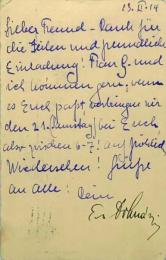 13. II. 14
Lieber Freund – Dank für
die lieben und freundliche
Einladung! Frau G. und
ich kommen gern, wenn
es Euch paßt verbringen wir
den 21. (Samstag) bei Euch
also zwischen 6-7! auf fröhlich
Wiedersehen! Grüße
an alle! Dein